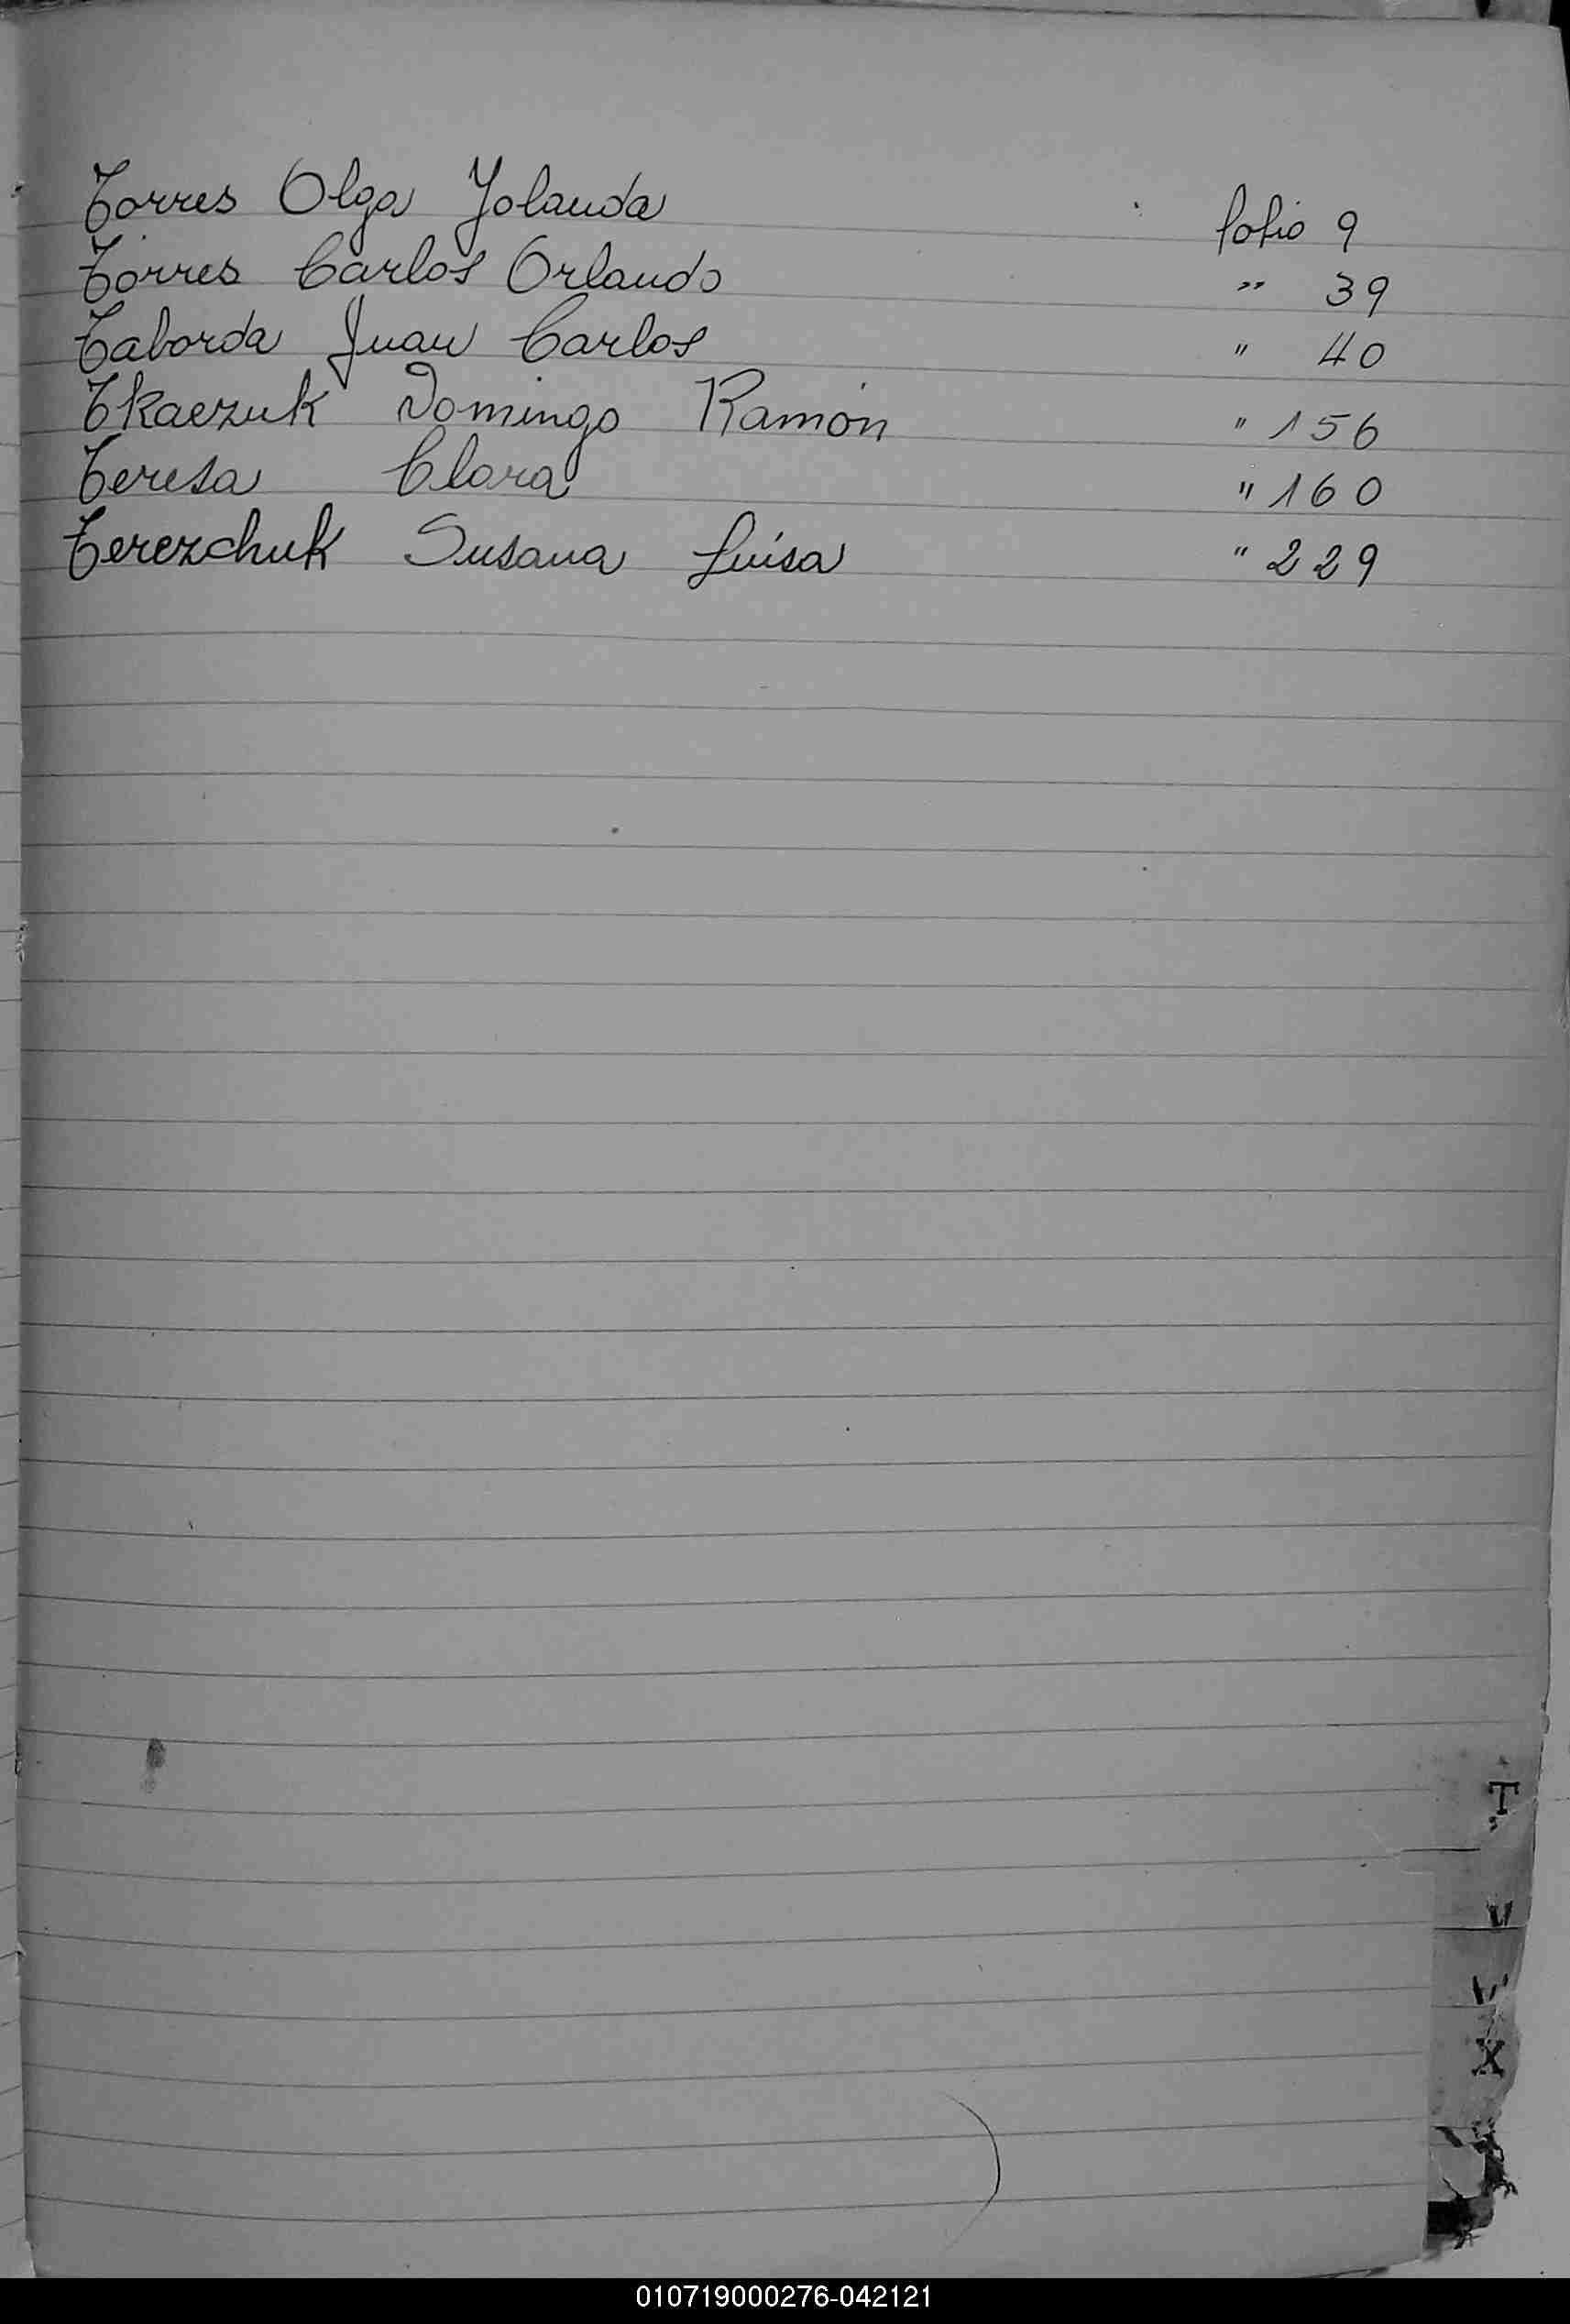 Torres Olga Yolanda folio 9
Torres Carlos Orlando " 39
Taborda Juan Carlos " 40
Tkaczuk Domingo Ramón " 156
Teresa Clara " 160
Terezchuk Susana Luisa " 229
T
V
W
X
010719000276-042121